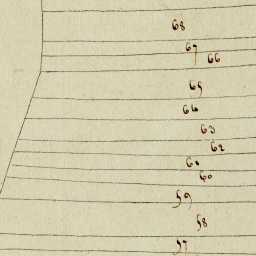 68
67
66
65
64
63
62
61
60
59
58
57